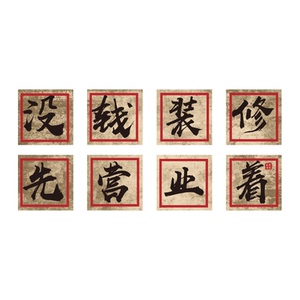 没钱装修
先营业着